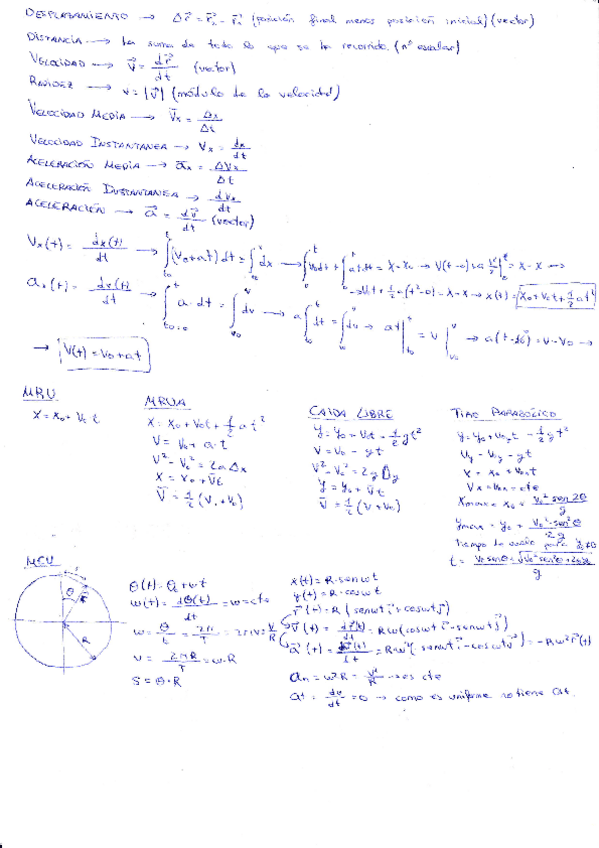 DESPLAZAMIENTO → Δr⃗ = r⃗₂ - r⃗₁ (posición final menos posición inicial) (vector)
DISTANCIA → La suma de todo lo que se ha recorrido. (nº escalar)
VELOCIDAD → v⃗ = dr⃗/dt (vector)
RAPIDEZ → v = |v⃗| (módulo de la velocidad)
VELOCIDAD MEDIA → v̄ₓ = Δx/Δt
VELOCIDAD INSTANTANEA → vₓ = dx/dt
ACELERACIÓN MEDIA → āₓ = Δvₓ/Δt
ACELERACIÓN INSTANTANEA → dvₓ/dt
ACELERACIÓN → a⃗ = dv⃗/dt (vector)
Vₓ(t) = dx(t)/dt → ∫(v₀+at)dt = ∫dx → ∫v₀dt + ∫at·dt = x-x₀ →
→ x(t) = x₀+v₀t+½at²
aₓ(t) = dv(t)/dt → ∫a·dt = ∫dv → a∫dt = ∫dv → at| = v| → a(t-t₀) = v-v₀ →
→ V(t) = v₀+at
MRU
x = x₀ + v₀ t
MRUA
x = x₀ + v₀t + ½ a t²
v = v₀ + a·t
v² - v₀² = 2aΔx
x = x₀ + v̄t
v̄ = ½ (v₁+v₀)
CAIDA LIBRE
y = y₀ + v₀t - ½ g t²
v = v₀ - gt
v² - v₀² = 2g Δy
y = y₀ + v̄t
v̄ = ½ (v₁+v₀)
TIRO PARABÓLICO
y = y₀ + v₀yt - ½ g t²
vy = v₀y - gt
x = x₀ + v₀ₓt
vₓ = v₀ₓ = cte
xmax = x₀ + v₀² sen2θ/g
ymax = y₀ + v₀²·sen²θ/2g
tiempo de vuelo para
t = v₀senθ + √v₀²sen²θ+2gy₀/g
MCU
θ
R
θ(t) = θ₀ + wt
w(t) = dθ(t)/dt = w = cte
w = θ/t = 2π/T = 2πν = v/R
v = 2πR/T = w·R
s = θ·R
x(t) = R·senwt
y(t) = R·coswt
r⃗(t) = R (senwt i⃗ + coswt j⃗)
v⃗(t) = dr⃗(t)/dt = Rw(coswt i⃗ - senwt j⃗)
a⃗(t) = dv⃗(t)/dt = Rw²(-senwt i⃗ - coswt j⃗) = -Rw² r⃗(t)
aₙ = w²R = v²/R → es cte
at = dv/dt = 0 → como es uniforme no tiene at.